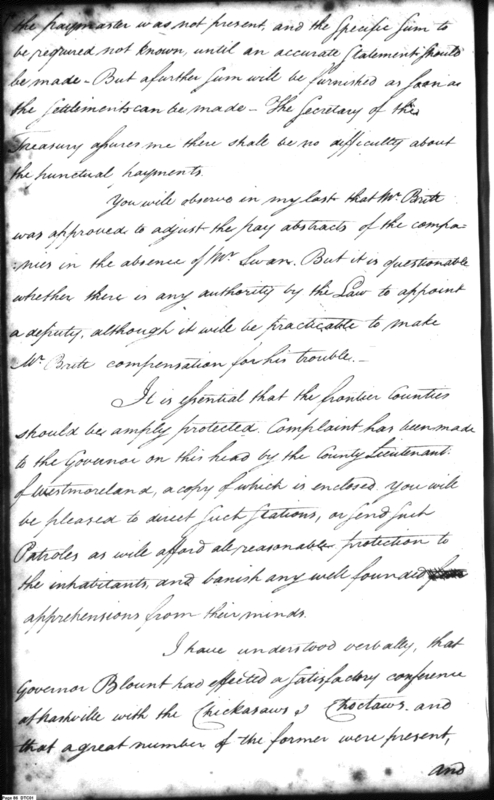 the paymaster was not present, and the specific sum to
be required not known, until an accurate statement should
be made - But a further sum will be furnished as soon as
the settlements can be made - The Secretary of the
Treasury assures me there shall be no difficulty about
the punctual payments.
You will observe in my last that Mr. Britt
was approved to adjust the pay abstracts of the compa-
-nies in the absence of Mr. Swan. But it is questionable
whether there is any authority by the Law to appoint
a deputy, although it will be practicable to make
Mr. Britt compensation for his trouble. -
It is essential that the frontier Counties
should be amply protected. Complaint has been made
to the Governor on this head by the County Lieutenant
of Westmoreland, a copy of which is enclosed. You will
be pleased to direct such stations, or send such
Patroles as will afford all reasonable protection to
the inhabitants, and banish any well founded
apprehensions from their minds.
I have understood verbally, that
Governor Blount had effected a satisfactory conference
at Nashville with the Chickasaws & Choctaws. and
that a great number of the former were present,
and
Page 86 DTC01